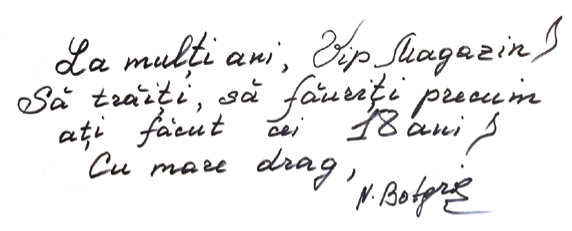 La mulți ani, Vip Magazin!
Să trăiți, să făuriți precum
ați făcut cei 18 ani!
Cu mare drag,
N. Botgros